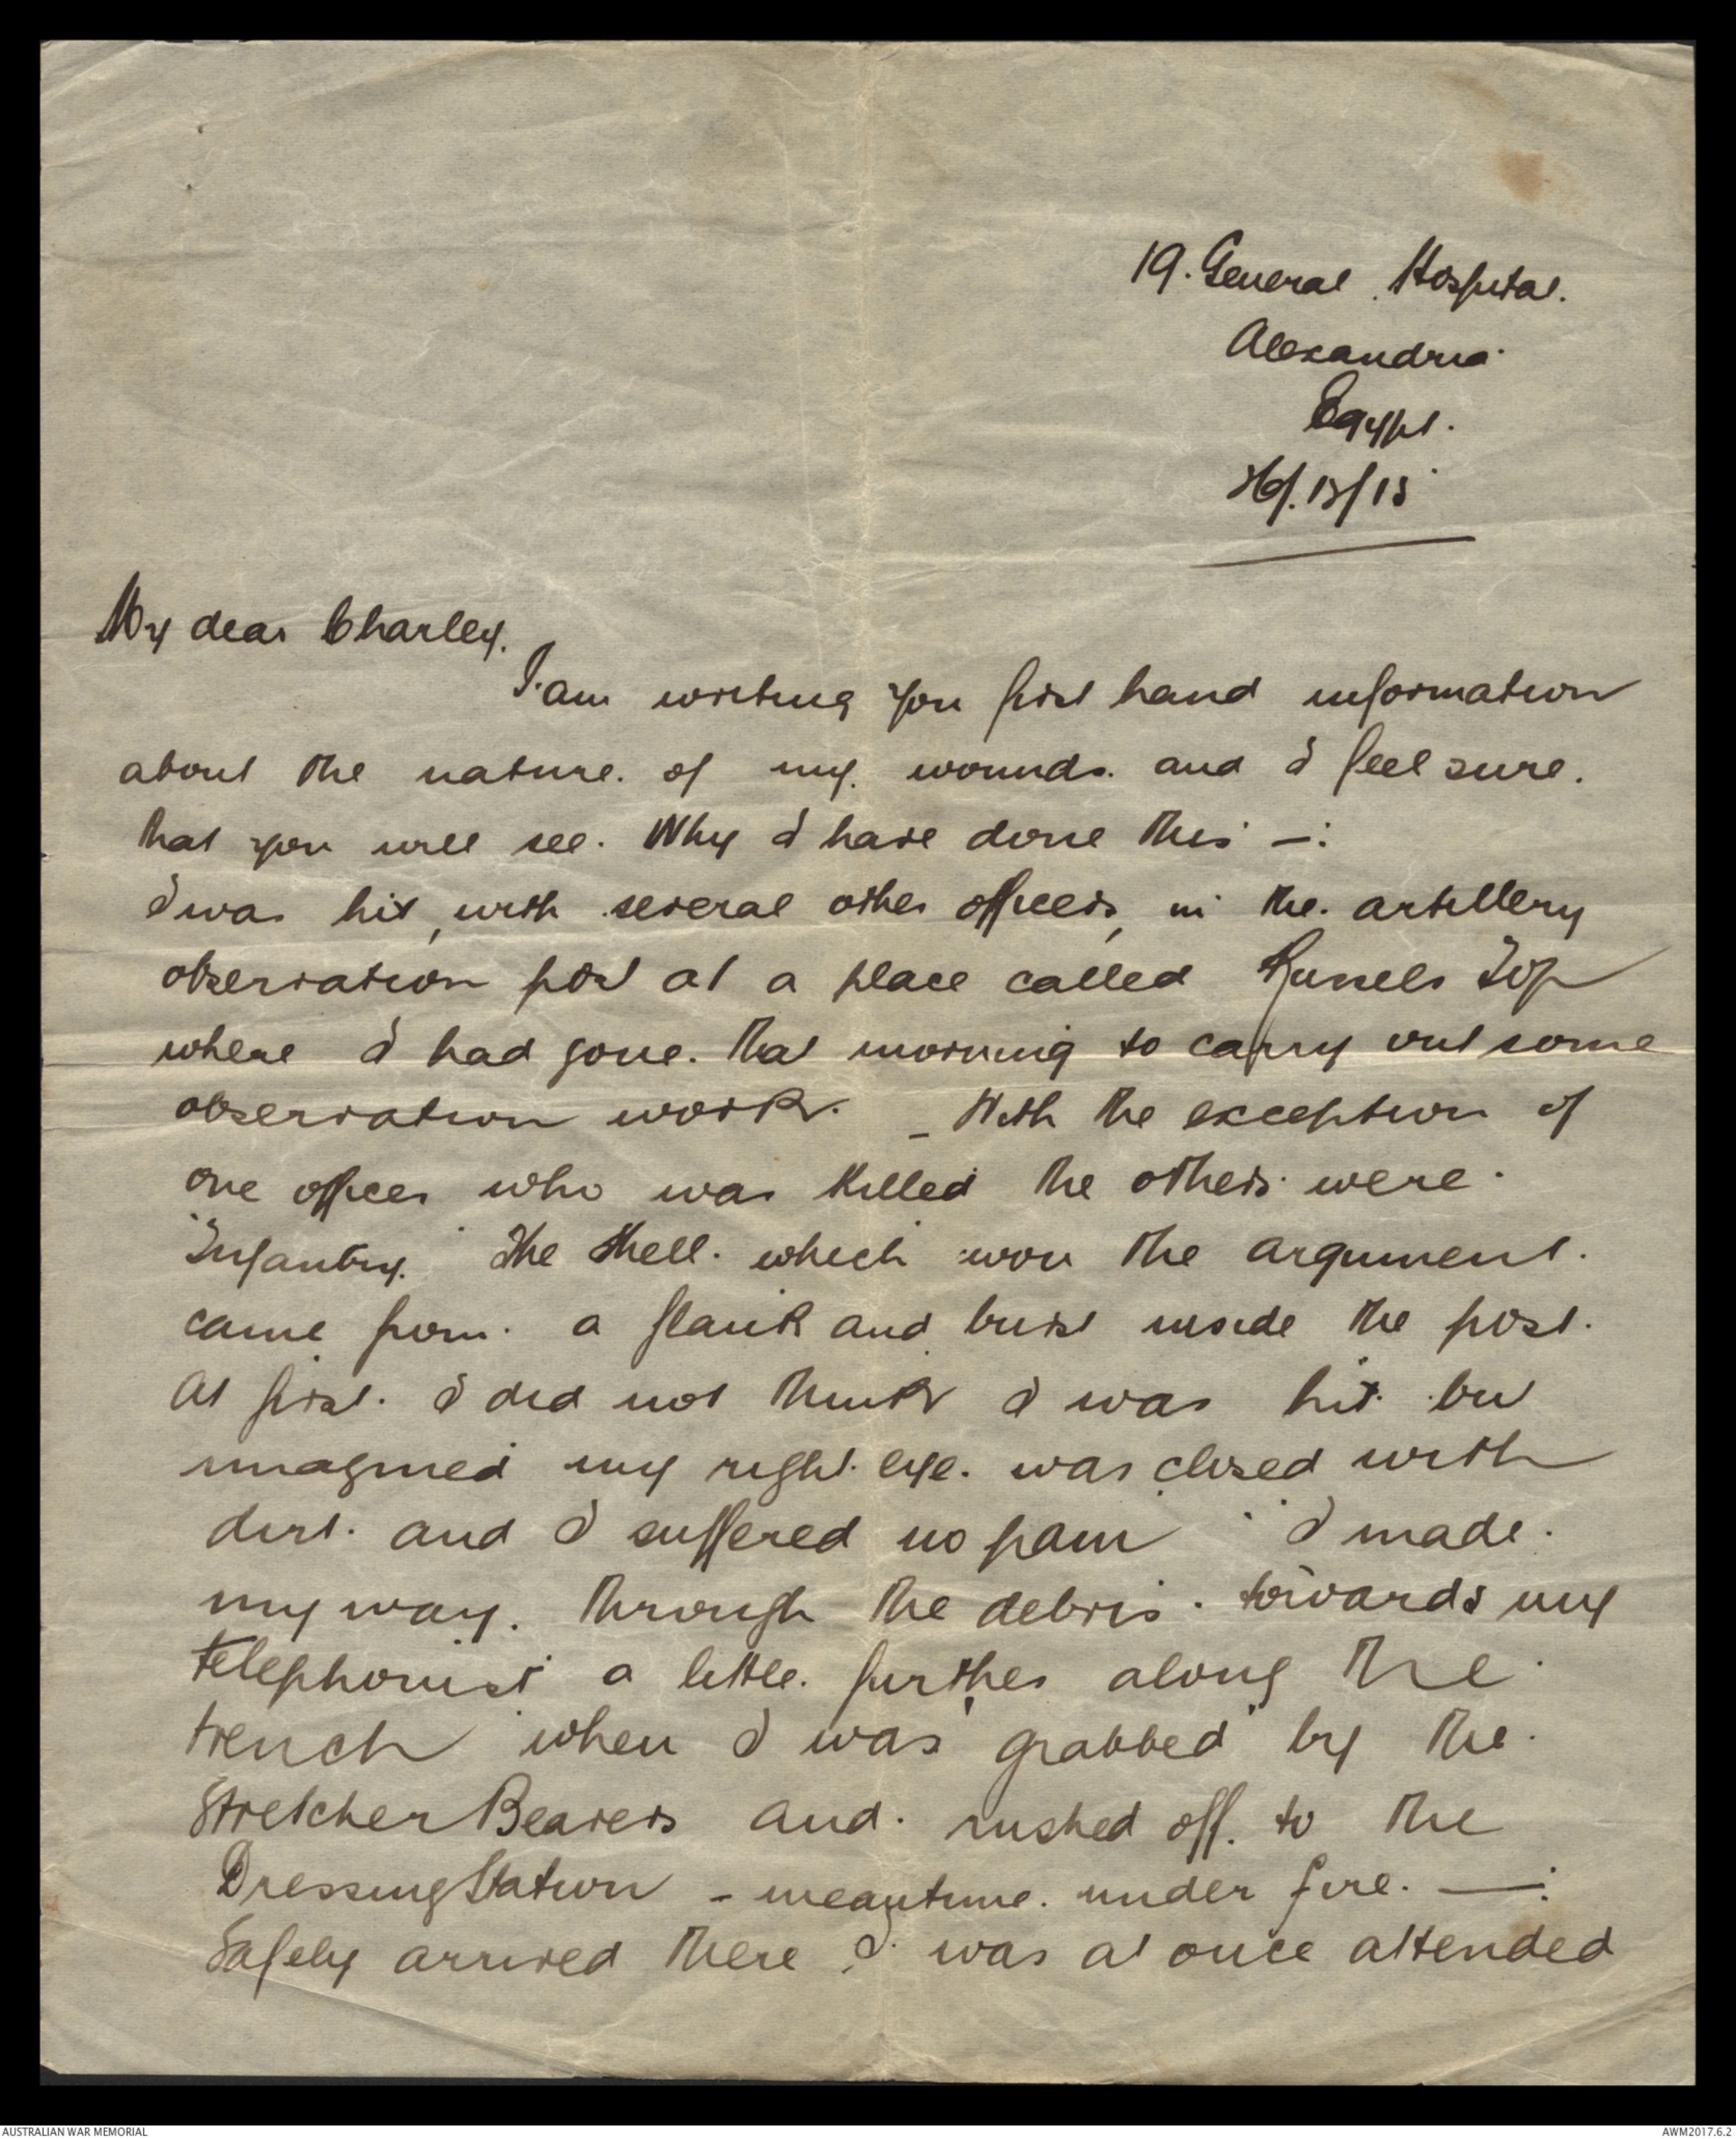 19. General Hospital.
Alexandria
Egypt.
My dear Charley.
I am writing you first hand information
about the nature. of my. wounds. and I feel sure.
that you will see. Why I have done this —:
I was hit, with several other officers, in the. artillery
observation post at a place called Russels Top
where I had gone. that morning to carry out some
observation work. - With the exception of
one officer who was killed the others were.
Infantry. The Shell. which won the argument.
came from. a flank and burst inside the post.
At first. I did not think I was hit. but
imagined my right. eye. was closed with
dirt. and I suffered no pain I made.
my way. through the debris. towards my
telephonist a little. further along the.
trench when I was "grabbed" by the.
Stretcher Bearers and. rushed off. to the
Dressing Station - meantime. under fire. —:
Safely arrived there, I. was at once attended
AUSTRALIAN WAR MEMORIAL
AWM2017.6.2